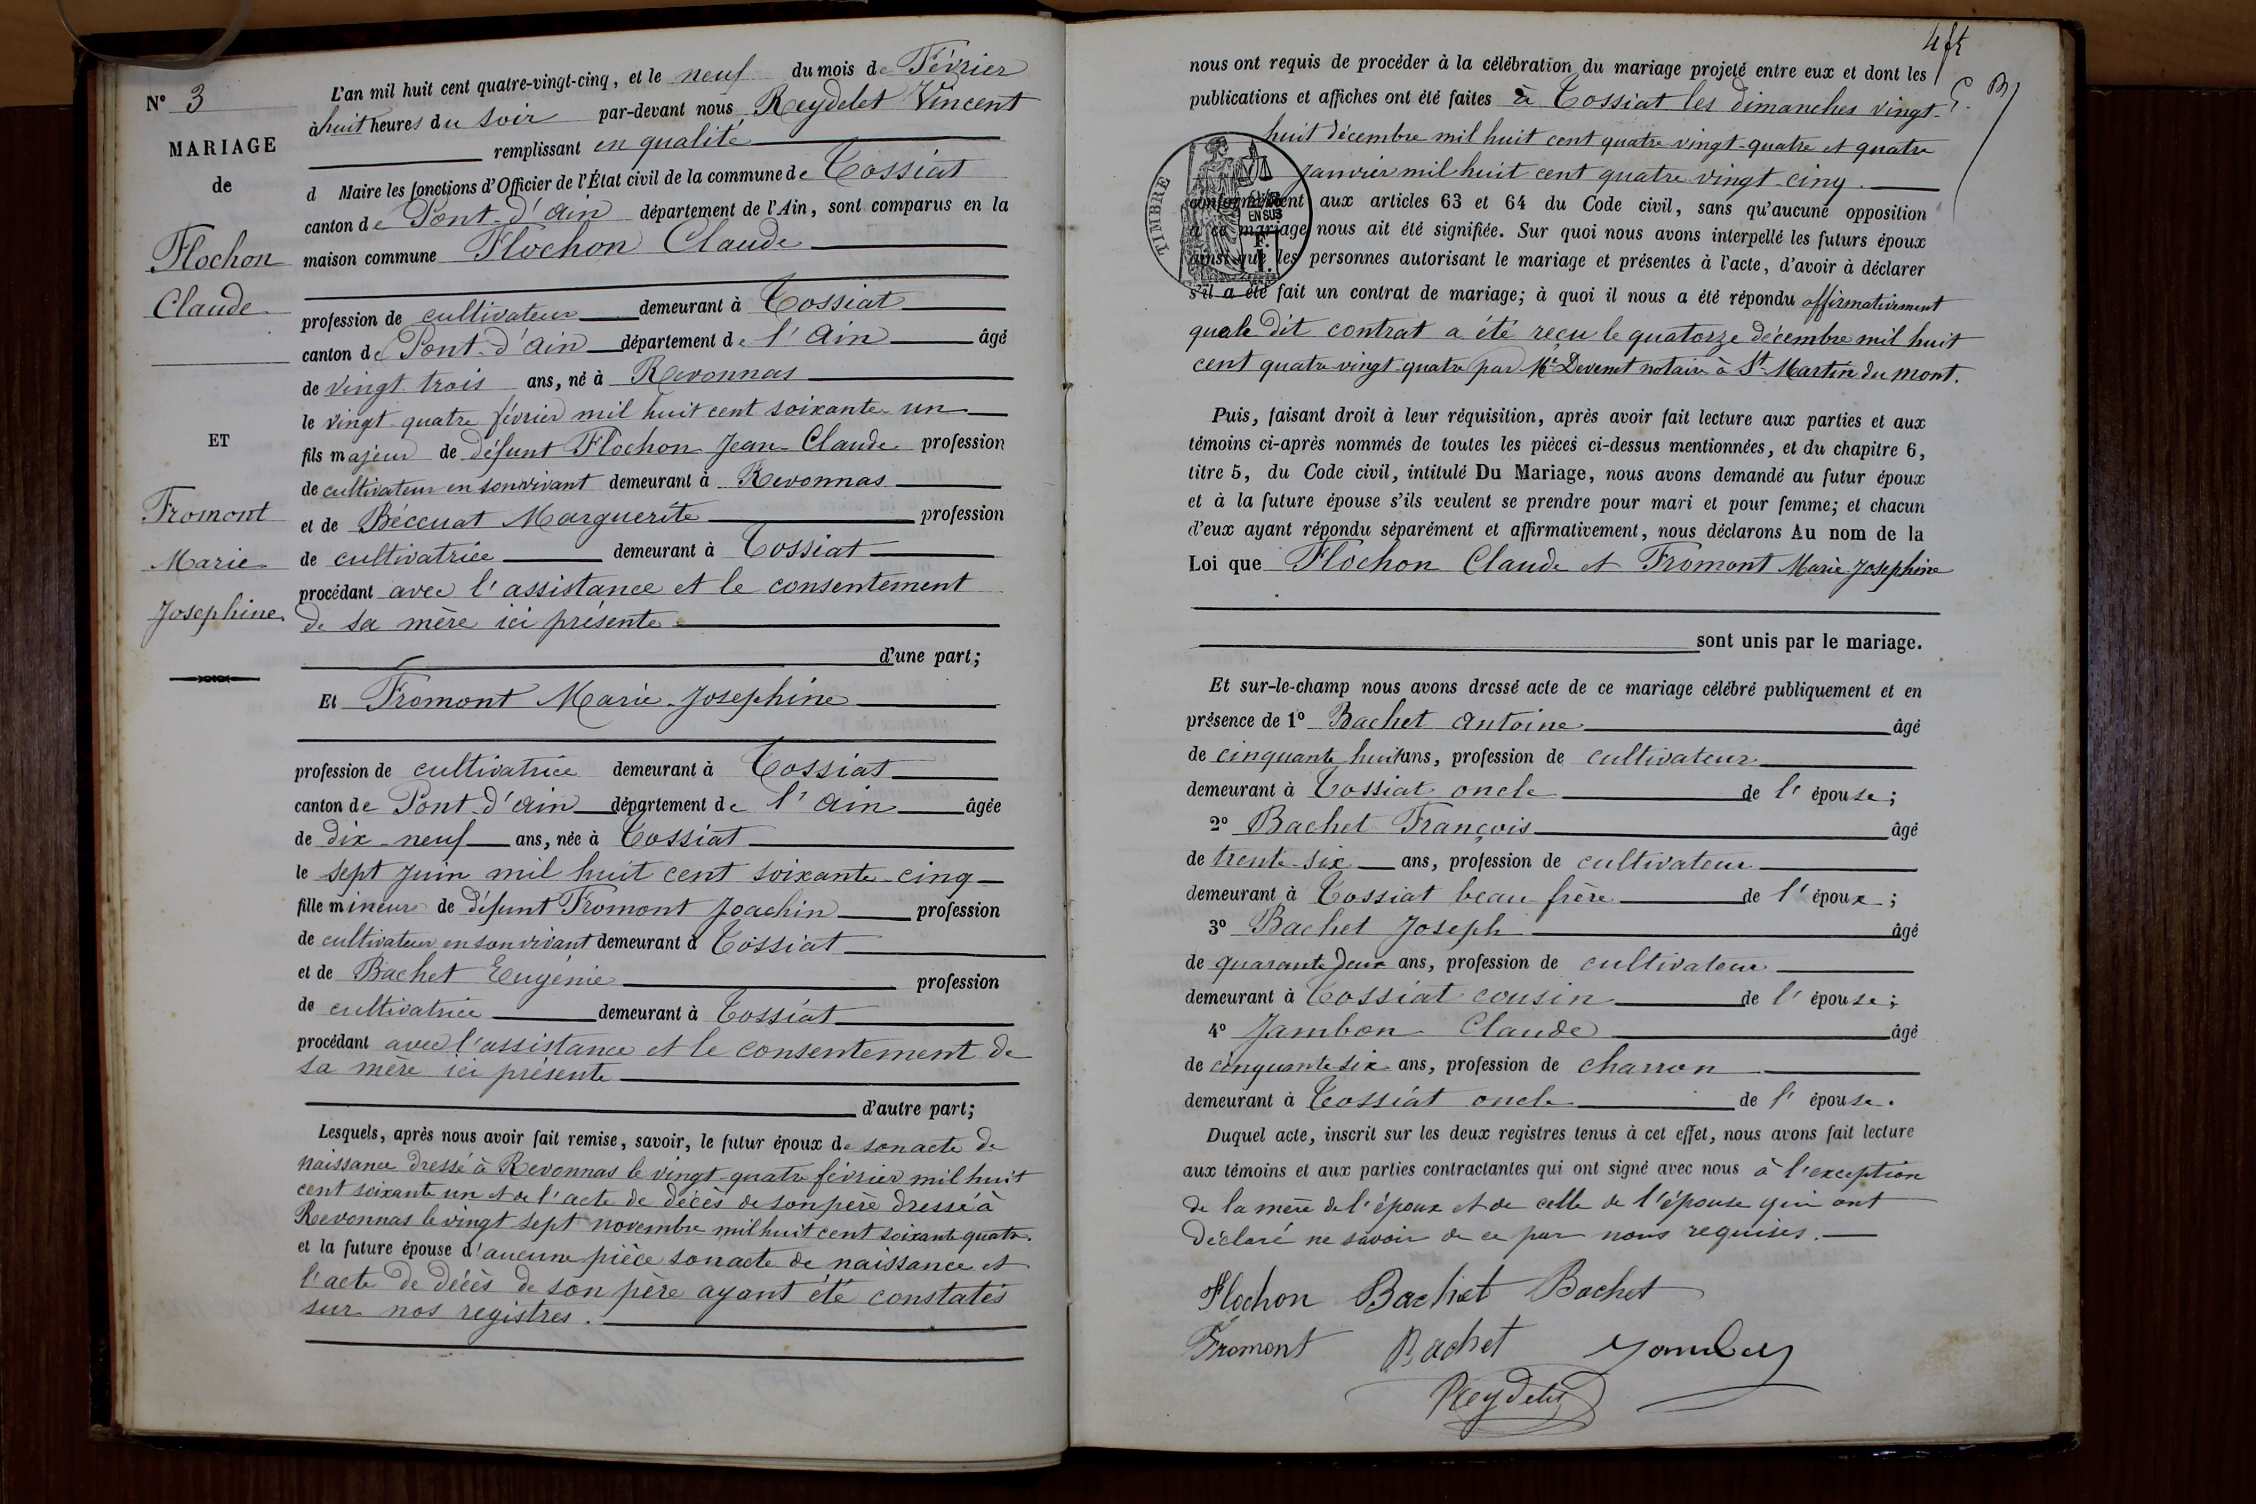 N° 3
MARIAGE
de
Flochon
Claude
ET
Fromont
Marie
Josephine
L'an mil huit cent quatre-vingt-cinq, et le neuf du mois de Février
à huit heures du soir par-devant nous Reydelet Vincent
remplissant en qualité
d Maire les fonctions d'Officier de l'État civil de la commune de Tossiat
canton de Pont-d'Ain département de l'Ain, sont comparus en la
maison commune Flochon Claude
profession de cultivateur demeurant à Tossiat
canton de Pont-d'Ain département de l'Ain âgé
de vingt trois ans, né à Revonnas
le vingt-quatre février mil huit cent soixante-un
fils majeur de défunt Flochon Jean-Claude profession
de cultivateur en son vivant demeurant à Revonnas
et de Béccuat Marguerite profession
de cultivatrice demeurant à Tossiat
procédant avec l'assistance et le consentement
de sa mère ici présente
d'une part;
Et Fromont Marie-Josephine
profession de cultivatrice demeurant à Tossiat
canton de Pont-d'Ain département de l'Ain âgée
de dix-neuf ans, née à Tossiat
le sept Juin mil huit cent soixante-cinq
fille mineure de défunt Fromont Joachin profession
de cultivateur en son vivant demeurant à Tossiat
et de Bachet Eugénie profession
de cultivatrice demeurant à Tossiat
procédant avec l'assistance et le consentement de
sa mère ici présente
d'autre part;
Lesquels, après nous avoir fait remise, savoir, le futur époux de son acte de
naissance dressé à Revonnas le vingt-quatre février mil huit
cent soixante un et de l'acte de décès de son père dressé à
Revonnas le vingt-sept novembre mil huit cent soixante quatre.
et la future épouse d'aucune pièce son acte de naissance et
l'acte de décès de son père ayant été constatés
sur nos registres.
nous ont requis de procéder à la célébration du mariage projeté entre eux et dont les
publications et affiches ont été faites à Tossiat les dimanches vingt-
huit décembre mil huit cent quatre vingt-quatre et quatre
janvier mil huit cent quatre vingt-cinq.
TIMBRE
EN SUS
F.
conformément aux articles 63 et 64 du Code civil, sans qu'aucune opposition
à ce mariage nous ait été signifiée. Sur quoi nous avons interpellé les futurs époux
ainsi que les personnes autorisant le mariage et présentes à l'acte, d'avoir à déclarer
s'il a été fait un contrat de mariage; à quoi il nous a été répondu affirmativement
que le dit contrat a été reçu le quatorze décembre mil huit
cent quatre vingt-quatre par Me Devenet notaire à St Martin du mont.
Puis, faisant droit à leur réquisition, après avoir fait lecture aux parties et aux
témoins ci-après nommés de toutes les pièces ci-dessus mentionnées, et du chapitre 6,
titre 5, du Code civil, intitulé Du Mariage, nous avons demandé au futur époux
et à la future épouse s'ils veulent se prendre pour mari et pour femme; et chacun
d'eux ayant répondu séparément et affirmativement, nous déclarons Au nom de la
Loi que Flochon Claude et Fromont Marie Josephine
sont unis par le mariage.
Et sur-le-champ nous avons dressé acte de ce mariage célébré publiquement et en
présence de 1° Bachet Antoine âgé
de cinquante huit ans, profession de cultivateur
demeurant à Tossiat oncle de l'épouse;
2° Bachet François âgé
de trente-six ans, profession de cultivateur
demeurant à Tossiat beau-frère de l'époux;
3° Bachet Joseph âgé
de quarante deux ans, profession de cultivateur
demeurant à Tossiat cousin de l'épouse;
4° Jambon Claude âgé
de cinquante six ans, profession de charron
demeurant à Tossiat oncle de l'épouse.
Duquel acte, inscrit sur les deux registres tenus à cet effet, nous avons fait lecture
aux témoins et aux parties contractantes qui ont signé avec nous à l'exception
de la mère de l'époux et de celle de l'épouse qui ont
déclaré ne savoir de ce par nous requises.
Flochon Bachet Bachet
Fromont Bachet Jambon
Reydelet